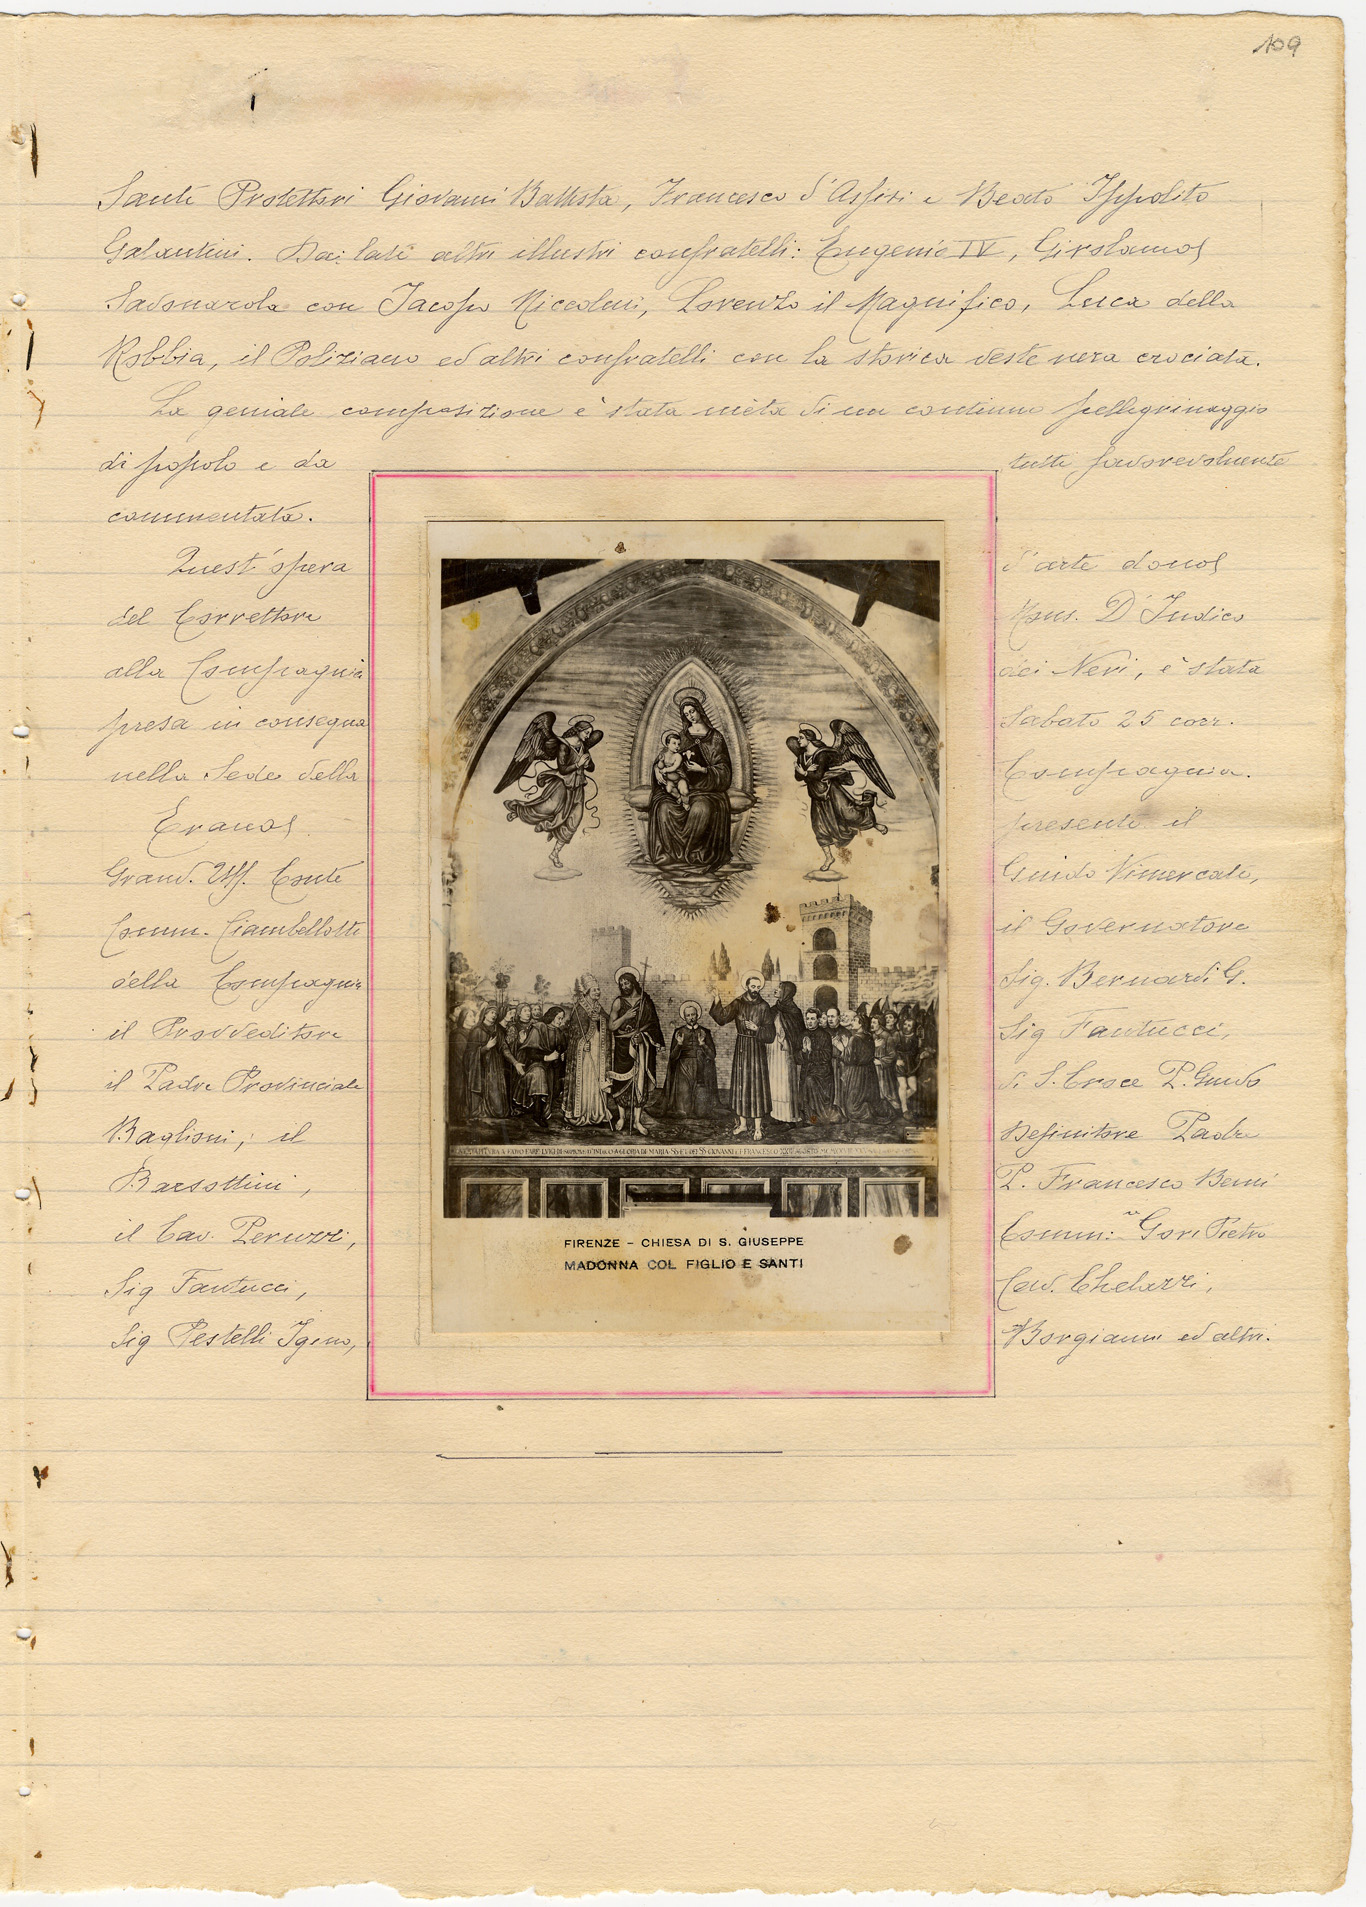 109
Santi Protettori Giovanni Battista, Francesco d'Assisi e Beato Ippolito
Galantini. Dai lati altri illustri confratelli: Eugenio IV, Girolamo
Savonarola con Jacopo Niccolini, Lorenzo il Magnifico, Luca della
Robbia, il Poliziano ed altri confratelli con la storica veste nera crociata.
La geniale composizione è stata mèta di un continuo pellegrinaggio
di popolo e da tutti favorevolmente
commentata.
Quest'opera d'arte dono
del Correttore Mons. D'Indico
alla Compagnia dei Neri, è stata
presa in consegna Sabato 25 corr.
nella Sede della Compagnia.
Erano presenti il
Grand. Uff. Conte Guido Vimercati,
Comm. Ciambellotti il Governatore
della Compagnia Sig. Bernardi G.
il Provveditore Sig Fantucci,
il Padre Provinciale di S. Croce P. Guido
Baglioni; il Definitore Padre
Barsottini, P. Francesco Berni
il Cav. Peruzzi, Comm: Gori Pietro
Sig Fantucci, Cav. Chelazzi,
Sig Pestelli Igino, Borgianni ed altri.
FIRENZE - CHIESA DI S. GIUSEPPE
MADONNA COL FIGLIO E SANTI